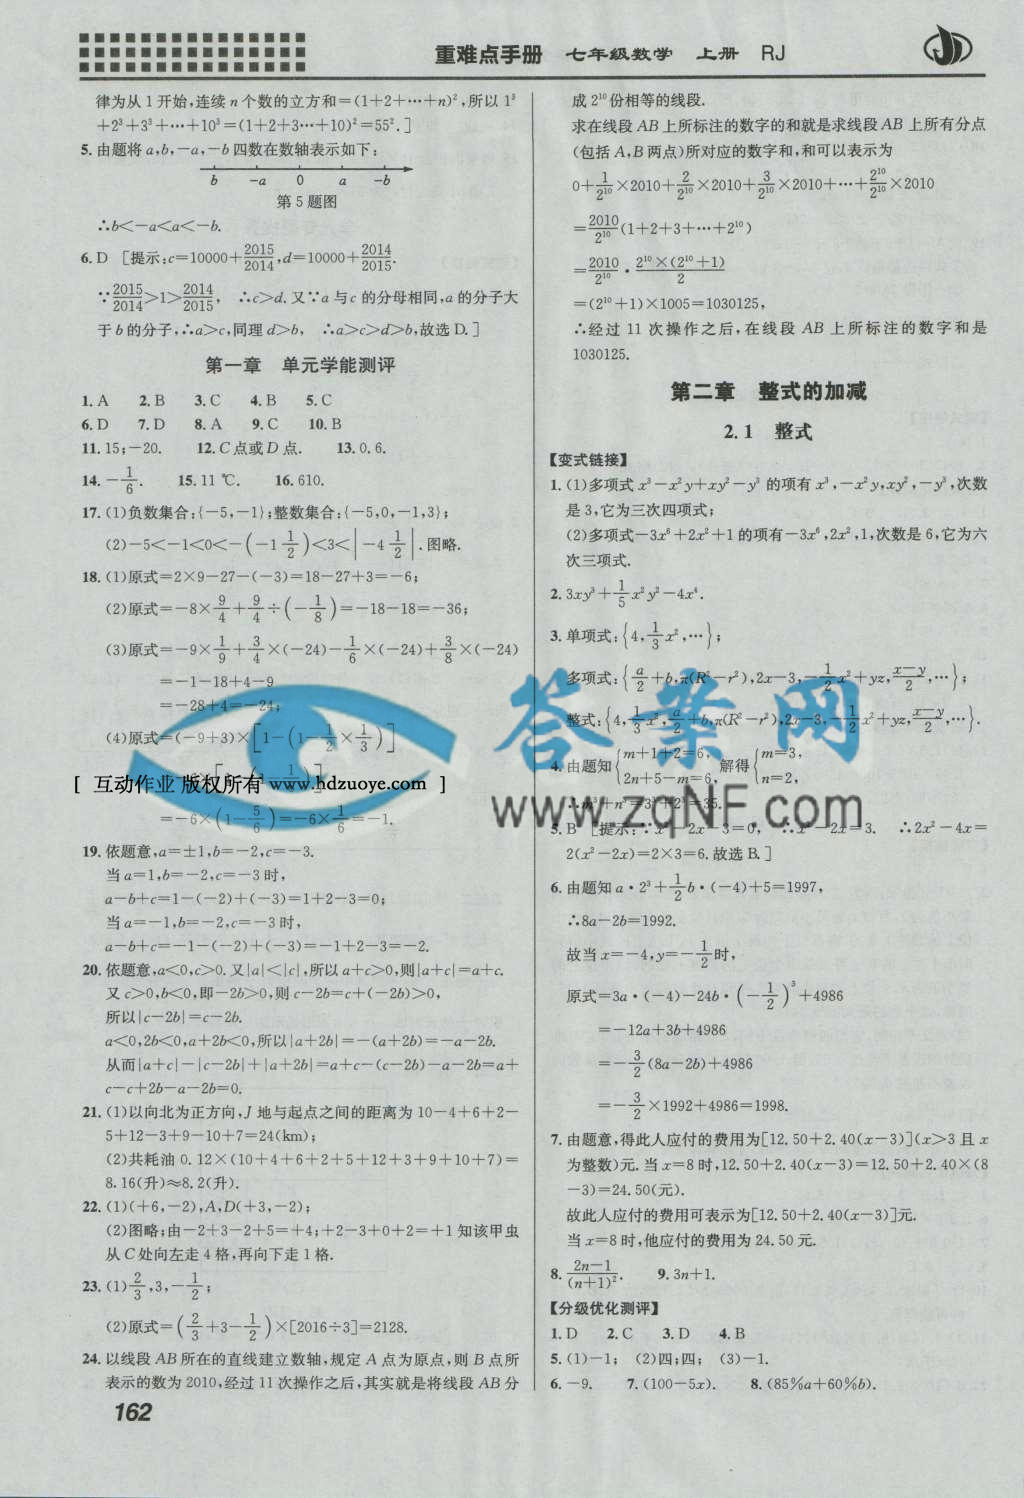 重难点手册 七年级数学 上册 RJ
律为从1开始,连续n个数的立方和=(1+2+⋯+n)²,所以1³
+2³+3³+⋯+10³=(1+2+3⋯+10)²=55².]
5.由题将a,b,-a,-b四数在数轴表示如下:
b -a 0 a -b
第5题图
∴b<-a<a<-b.
6.D [提示:c=10000+2015/2014,d=10000+2014/2015.
∵2015/2014>1>2014/2015, ∴c>d.又∵a与c的分母相同,a的分子大
于b的分子,∴a>c,同理d>b, ∴a>c>d>b,故选D.]
第一章 单元学能测评
1.A 2.B 3.C 4.B 5.C
6.D 7.D 8.A 9.C 10.B
11.15;-20. 12.C点或D点. 13.0.6.
14.-1/6. 15.11 ℃. 16.610.
17.(1)负数集合:{-5,-1};整数集合:{-5,0,-1,3};
(2)-5<-1<0<-(-1 1/2)<3<|-4 1/2|.图略.
18.(1)原式=2×9-27-(-3)=18-27+3=-6;
(2)原式=-8×9/4+9/4÷(-1/8)=-18-18=-36;
(3)原式=-9×1/9+3/4×(-24)-1/6×(-24)+3/8×(-24)
=-1-18+4-9
=-28+4=-24;
(4)原式=(-9+3)×[1-(1-1/2×1/3)]
[ 互动作业 版权所有 www.hdzuoye.com ]
=-6×(1-5/6)=-6×1/6=-1.
19.依题意,a=±1,b=-2,c=-3.
当a=1,b=-2,c=-3时,
a-b+c=1-(-2)+(-3)=1+2-3=0;
当a=-1,b=-2,c=-3时,
a-b+c=-1-(-2)+(-3)=-1+2-3=-2.
20.依题意,a<0,c>0.又|a|<|c|,所以a+c>0,则|a+c|=a+c.
又c>0,b<0,即-2b>0,则c-2b=c+(-2b)>0,
所以|c-2b|=c-2b.
a<0,2b<0,a+2b<0,所以|a+2b|=-(a+2b)=-a-2b.
从而|a+c|-|c-2b|+|a+2b|=a+c-(c-2b)-a-2b=a+
c-c+2b-a-2b=0.
21.(1)以向北为正方向,J地与起点之间的距离为10-4+6+2-
5+12-3+9-10+7=24(km);
(2)共耗油0.12×(10+4+6+2+5+12+3+9+10+7)=
8.16(升)≈8.2(升).
22.(1)(+6,-2),A,D(+3,-2);
(2)图略;由-2+3-2+5=+4;+2-3+0+2=+1知该甲虫
从C处向左走4格,再向下走1格.
23.(1)2/3,3,-1/2;
(2)原式=(2/3+3-1/2)×[2016÷3]=2128.
24.以线段AB所在的直线建立数轴,规定A点为原点,则B点所
表示的数为2010,经过11次操作之后,其实就是将线段AB分
162
成2¹⁰份相等的线段.
求在线段AB上所标注的数字的和就是求线段AB上所有分点
(包括A,B两点)所对应的数字和,和可以表示为
0+1/2¹⁰×2010+2/2¹⁰×2010+3/2¹⁰×2010+⋯+2¹⁰/2¹⁰×2010
=2010/2¹⁰(1+2+3+⋯+2¹⁰)
=2010/2¹⁰·2¹⁰×(2¹⁰+1)/2
=(2¹⁰+1)×1005=1030125,
∴经过11次操作之后,在线段AB上所标注的数字和是
1030125.
第二章 整式的加减
2.1 整式
【变式链接】
1.(1)多项式x³-x²y+xy²-y³的项有x³,-x²y,xy²,-y³,次数
是3,它为三次四项式;
(2)多项式-3x⁶+2x²+1的项有-3x⁶,2x²,1,次数是6,它为六
次三项式.
2.3xy³+1/5x²y²-4x⁴.
3.单项式:{4,1/3x²,⋯};
多项式:{a/2+b,π(R²-r²),2x-3,-1/2x²+yz,x-y/2,⋯};
整式:{4,1/3x²,a/2+b,π(R²-r²),2x-3,-1/2x²+yz,x-y/2,⋯}.
4.由题知{m+1+2=6, 2n+5-m=6, 解得{m=3, n=2,
∴m³+n³=3³+2³=35.
5.B [提示:∵x²-2x-3=0, ∴x²-2x=3. ∴2x²-4x=
2(x²-2x)=2×3=6.故选B.]
6.由题知a·2³+1/2b·(-4)+5=1997,
∴8a-2b=1992.
故当x=-4,y=-1/2时,
原式=3a·(-4)-24b·(-1/2)³+4986
=-12a+3b+4986
=-3/2(8a-2b)+4986
=-3/2×1992+4986=1998.
7.由题意,得此人应付的费用为[12.50+2.40(x-3)](x>3且x
为整数)元.当x=8时,12.50+2.40(x-3)=12.50+2.40×(8
-3)=24.50(元).
故此人应付的费用可表示为[12.50+2.40(x-3)]元.
当x=8时,他应付的费用为24.50元.
8.2n-1/(n+1)². 9.3n+1.
【分级优化测评】
1.D 2.C 3.D 4.B
5.(1)-1; (2)四;四; (3)-1.
6.-9. 7.(100-5x). 8.(85%a+60%b).
答案网
www.zqNF.com